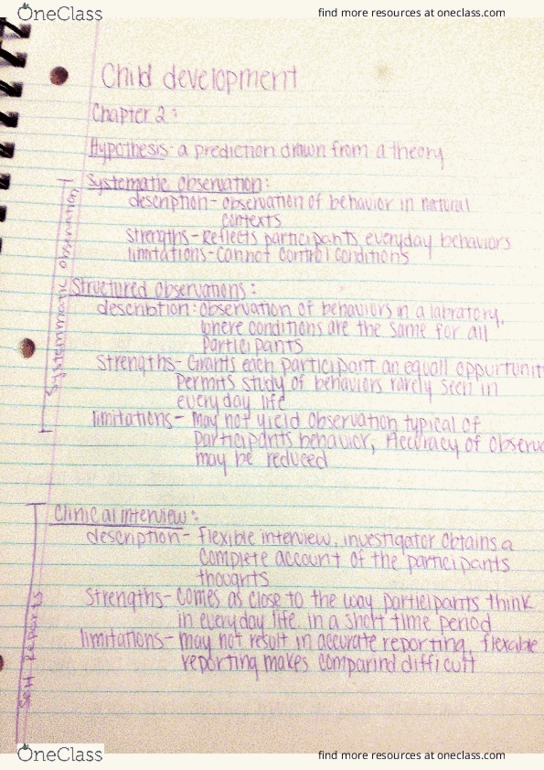 OneClass
find more resources at oneclass.com
Child development
Chapter 2:
Hypothesis - a prediction drawn from a theory
Systematic observation:
description - observation of behavior in natural
contexts
strengths - Reflects participants everyday behaviors
limitations - cannot control conditions
Structured observations:
description: observation of behaviors in a labratory,
where conditions are the same for all
participants
Strengths - Grants each participant an equall oppurtunit
permits study of behaviors rarely seen in
everyday life
limitations - may not yield observation typical of
participants behavior, Accuracy of observa
may be reduced
Systemmatic observation
Clinical interview:
description - flexible interview, investigator obtains a
complete account of the participants
thoughts
Strengths - Comes as close to the way participants think
in everyday life, in a short time period
limitations - may not result in accurate reporting, flexable
reporting makes comparind difficult
Self Reports
OneClass
find more resources at oneclass.com